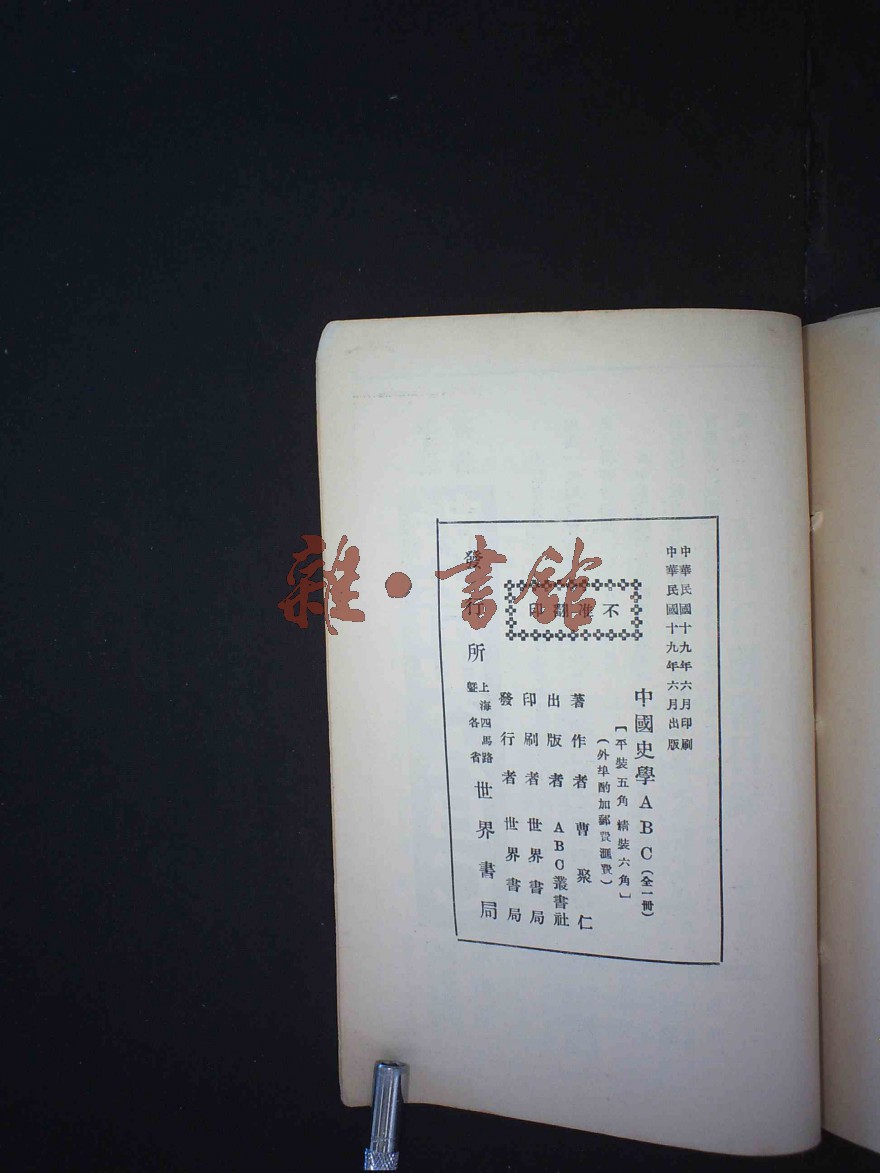 中華民國十九年六月印刷
中華民國十九年六月出版
中國史學ABC（全一冊）
【平裝五角 精裝六角】
（外埠酌加郵費滙費）
不准翻印
著作者 曹聚仁
出版者 ABC叢書社
印刷者 世界書局
發行者 世界書局
發行所 上海四馬路
暨各省
世界書局
雜·書館